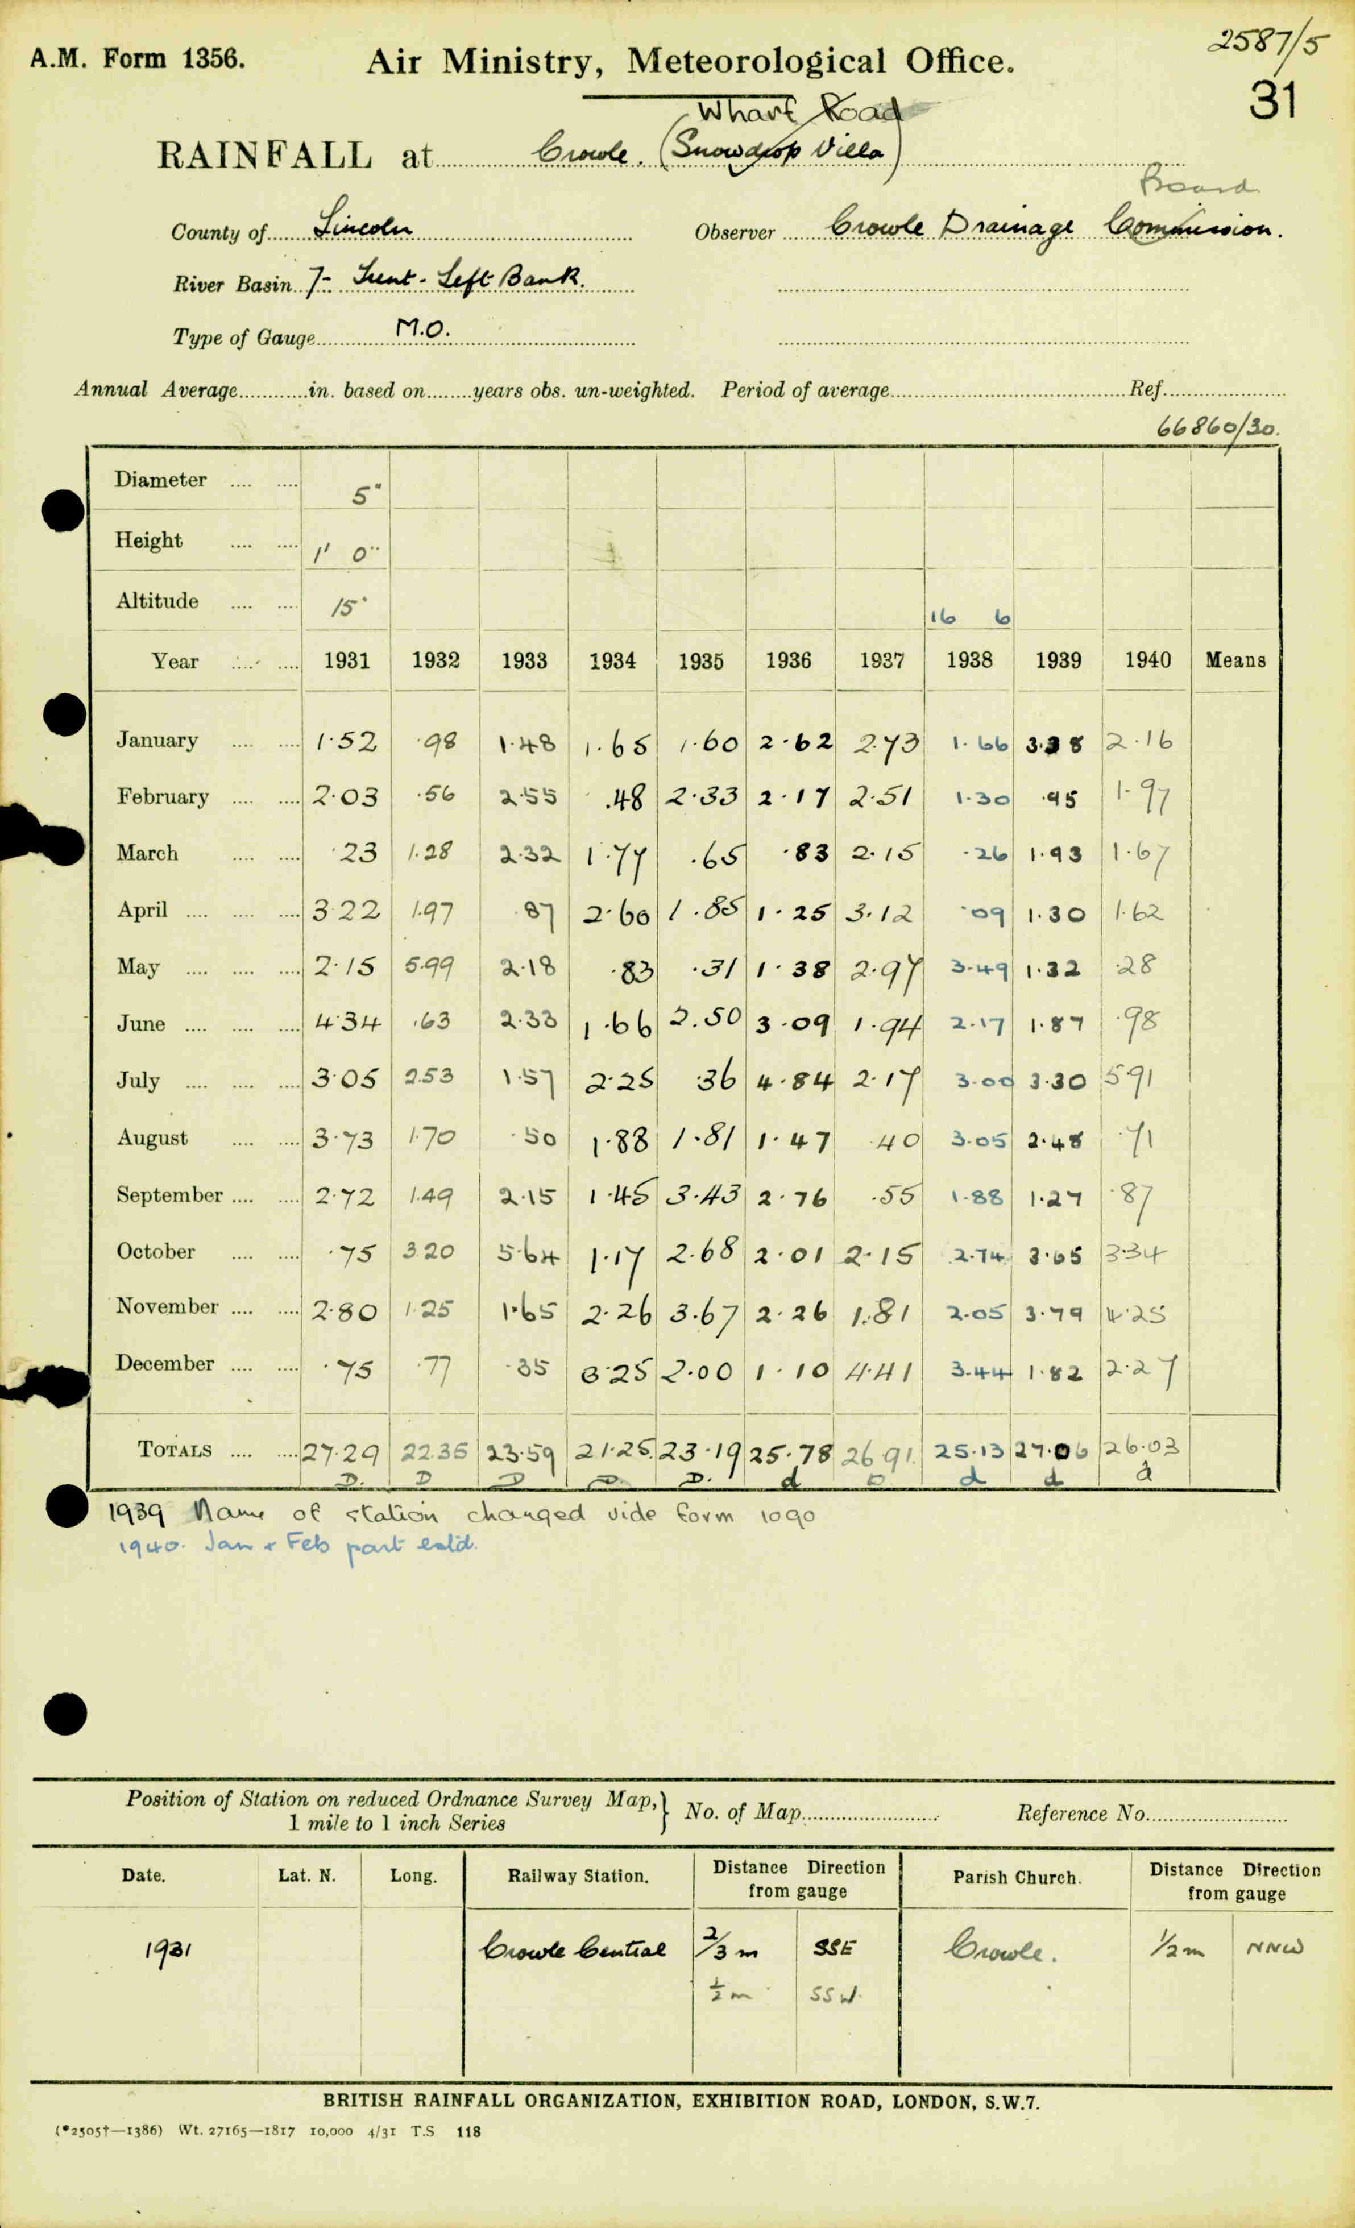 2587/5
A.M. Form 1356. Air Ministry, Meteorological Office.
31
Wharf Road
RAINFALL at Crowle. (Snowdrop Villa)
Board
County of Lincoln Observer Crowle Drainage Commission.
River Basin 7- Trent - Left Bank.
Type of Gauge M.O.
Annual Average in. based on years obs. un-weighted. Period of average Ref.
66860/30.
Diameter 5"
Height 1' 0"
Altitude 15' 16 6
Year 1931 1932 1933 1934 1935 1936 1937 1938 1939 1940 Means
January 1.52 .98 1.48 1.65 1.60 2.62 2.73 1.66 3.38 2.16
February 2.03 .56 2.55 .48 2.33 2.17 2.51 1.30 .95 1.97
March .23 1.28 2.32 1.77 .65 .83 2.15 .26 1.93 1.67
April 3.22 1.97 .87 2.60 1.85 1.25 3.12 .09 1.30 1.62
May 2.15 5.99 2.18 .83 .31 1.38 2.97 3.49 1.32 .28
June 4.34 .63 2.33 1.66 2.50 3.09 1.94 2.17 1.87 .98
July 3.05 2.53 1.57 2.25 .36 4.84 2.17 3.00 3.30 5.91
August 3.73 1.70 .50 1.88 1.81 1.47 .40 3.05 2.48 .71
September 2.72 1.49 2.15 1.45 3.43 2.76 .55 1.88 1.27 .87
October .75 3.20 5.64 1.17 2.68 2.01 2.15 2.74 3.65 3.34
November 2.80 1.25 1.65 2.26 3.67 2.26 1.81 2.05 3.79 4.25
December .75 .77 .35 3.25 2.00 1.10 4.41 3.44 1.82 2.27
TOTALS 27.29 22.35 23.59 21.25 23.19 25.78 26.91 25.13 27.06 26.03
D. D D D. D. d D d d d
1939 Name of station changed vide form 1090
1940. Jan + Feb part estd.
Position of Station on reduced Ordnance Survey Map, } No. of Map Reference No.
1 mile to 1 inch Series
Date. Lat. N. Long. Railway Station. Distance Direction from gauge Parish Church. Distance Direction from gauge
1931 Crowle Central 2/3 m SSE Crowle. 1/2 m NNW
1/2 m SSW.
BRITISH RAINFALL ORGANIZATION, EXHIBITION ROAD, LONDON, S.W.7.
(*2505†—1386) Wt. 27165—1817 10,000 4/31 T.S 118